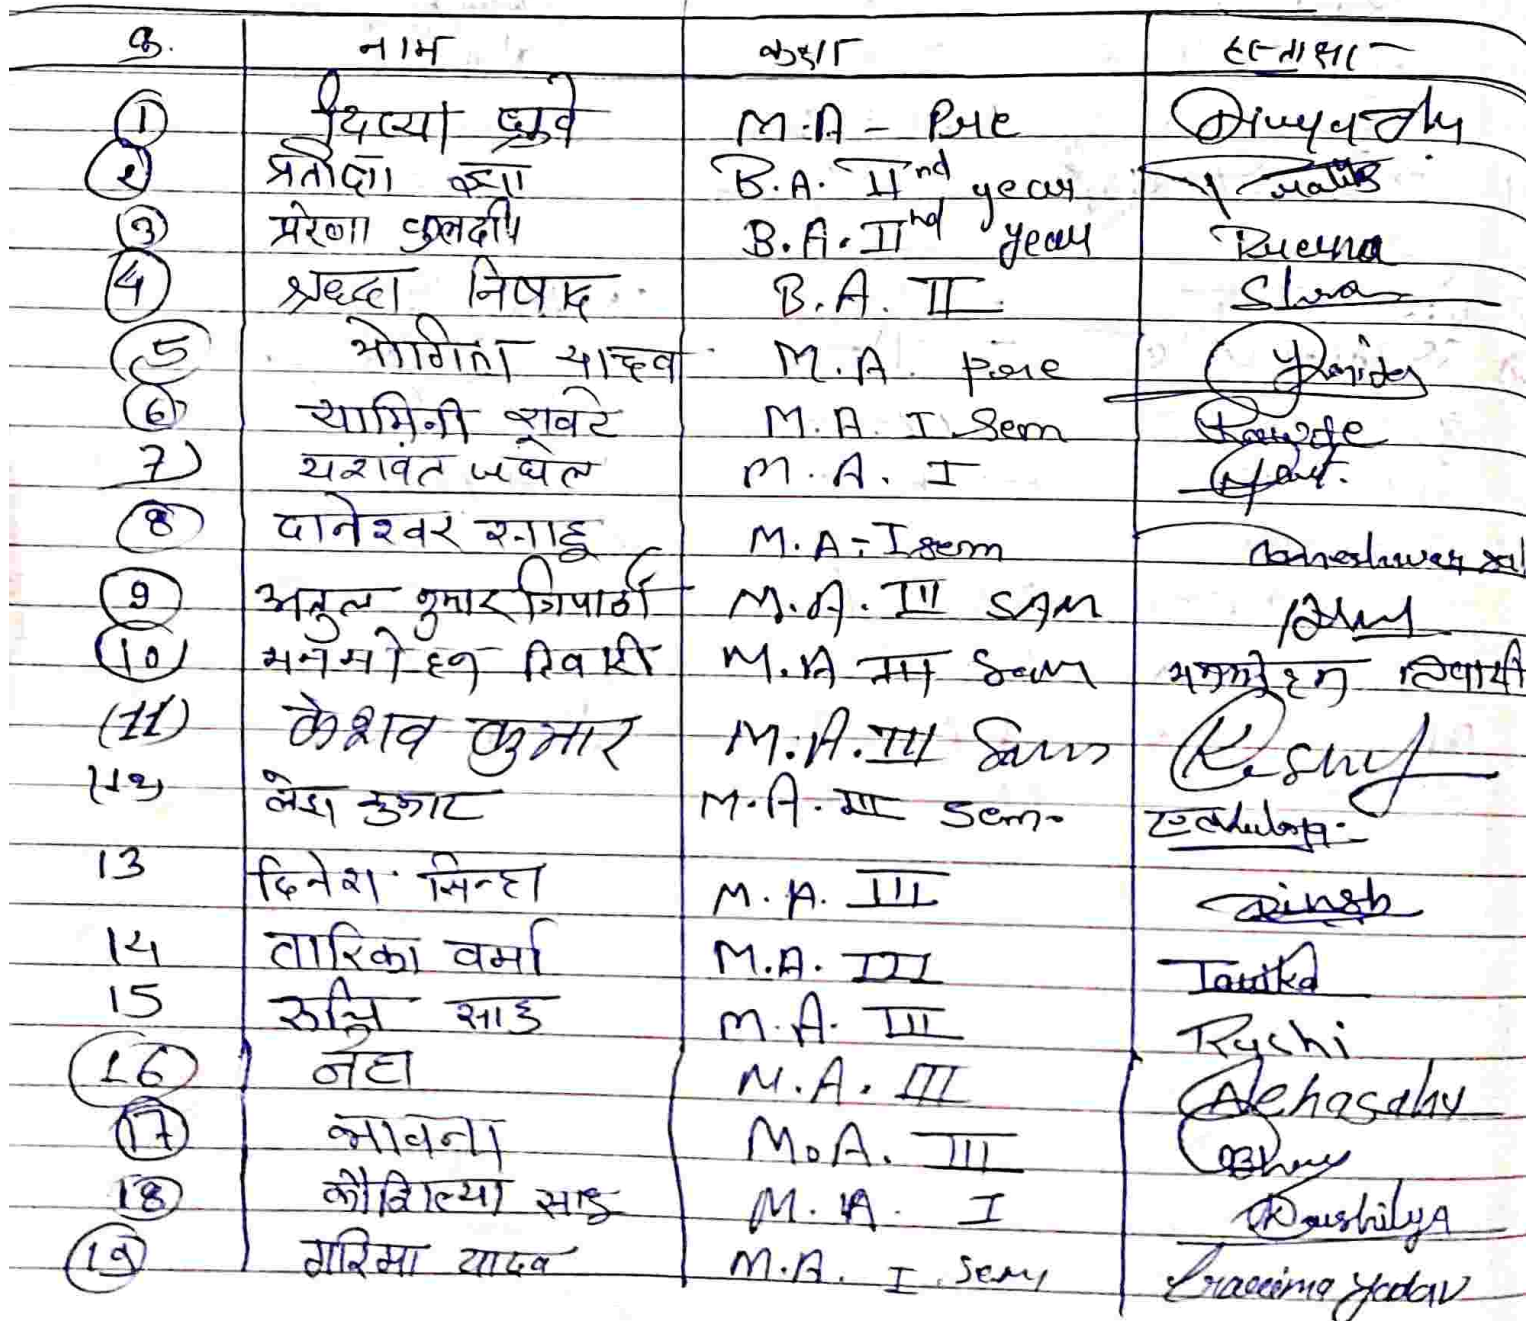 क्र. नाम कक्षा हस्ताक्षर
1 दिव्या ध्रुवे M.A - Pre Divya
2 प्रतीक्षा B.A. IInd year
3 प्रेरणा कुलदीप B.A. IInd year Prerna
4 श्रध्दा निषाद B.A. II
5 योगिता यादव M.A. pre
6 यामिनी रावटे M.A. I Sem Rawte
7) यशवंत जंघेल M.A. I
8 दानेश्वर साहू M.A - I sem Daneshwar
9 अतुल कुमार त्रिपाठी M.A. III
10 मनमोहन तिवारी M.A III Sem मनमोहन तिवारी
(11) केशव कुमार M.A. III Sem
(12) कुमार M.A. III Sem.
13 दिनेश सिन्हा M.A. III Dinesh
14 तारिका वर्मा M.A. III Tarika
15 रुचि साहू M.A. III Ruchi
16 नेहा M.A. III Nehasahu
17 भावना M.A. III
18 कौशिल्या साहू M.A. I Kaushilya
19 गरिमा यादव M.A. I Sem Garima Yadav